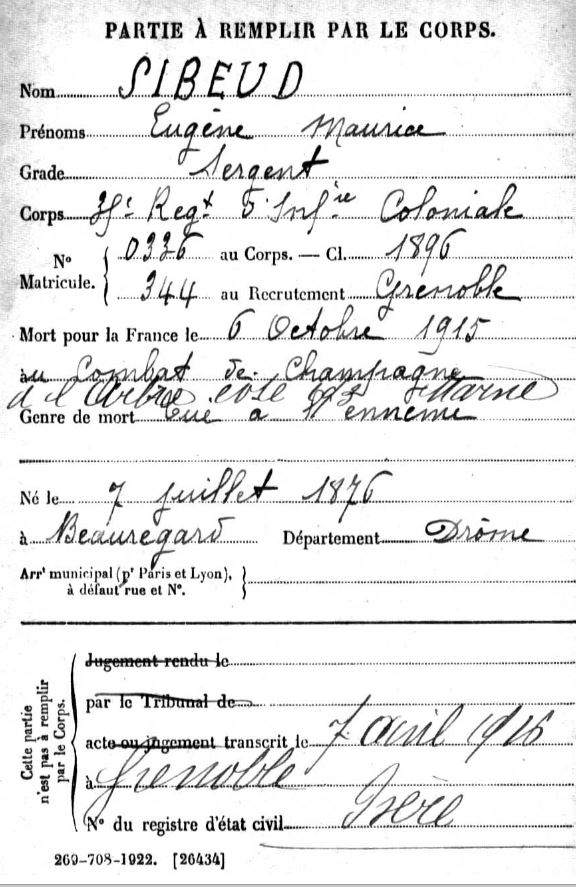 PARTIE À REMPLIR PAR LE CORPS.
Nom SIBEUD
Prénoms Eugène Maurice
Grade Sergent
Corps Regt d'Infie Coloniale
No Matricule. 0336 au Corps. — Cl. 1896
344 au Recrutement Grenoble
Mort pour la France le 6 Octobre 1915
au Combat de Champagne
à l'Arbre cote 193 Marne
Genre de mort Tué à l'ennemi
Né le 7 juillet 1876
à Beauregard Département Drôme
Arrt municipal (pr Paris et Lyon),
à défaut rue et No.
Cette partie n'est pas à remplir par le Corps.
Jugement rendu le
par le Tribunal de
acte ou jugement transcrit le 7 avril 1916
à Grenoble
No du registre d'état civil Isère
269-708-1922. [26434]